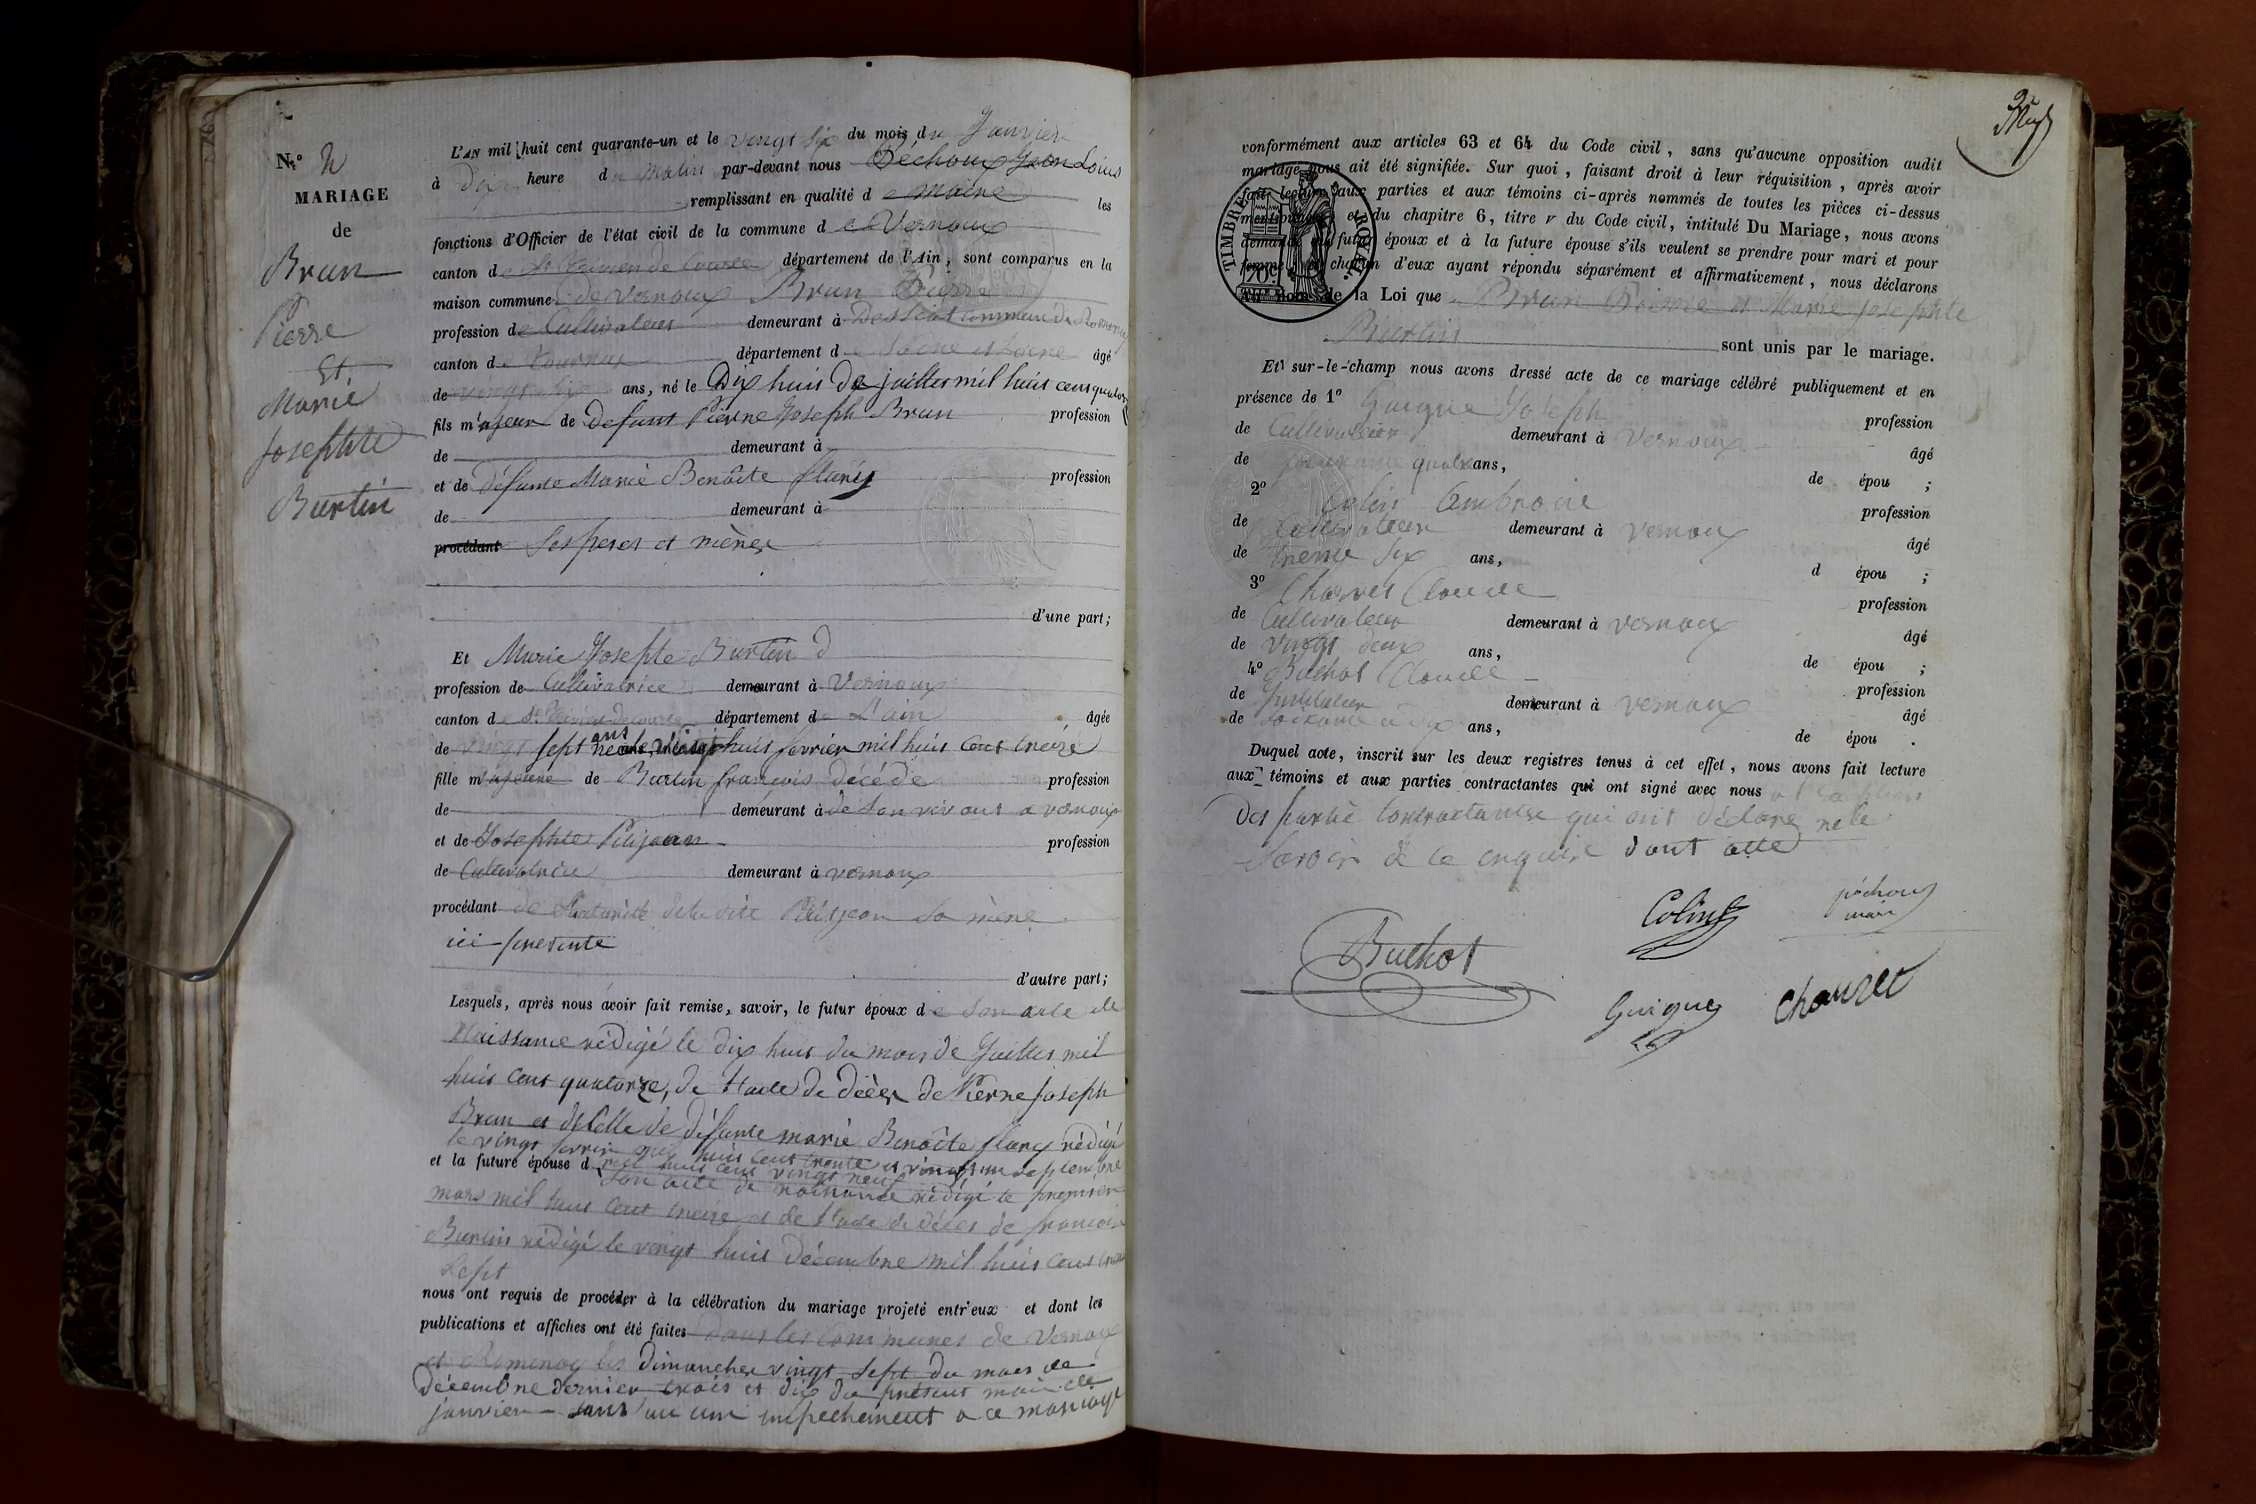 N.º 2
MARIAGE
de
Brun
Pierre
Et
Marie
Josephte
Burtin
L'AN mil huit cent quarante-un et le vingt six du mois du Janvier
à dix heure du Matin par-devant nous Péchoux Jean Louis
remplissant en qualité de maire les
fonctions d'Officier de l'état civil de la commune de Vernoux
canton de St Trivier de Courtes département de l'Ain, sont comparus en la
maison commune de vernoux Brun Pierre
profession de Cultivateur demeurant à commune de
canton de département de Saone et Loire âgé
de vingt six ans, né le Dix huit de juillet mil huit cent quatorze
fils majeur de defunt Pierre Joseph Brun profession
de demeurant à
et de défunte Marie Benoite profession
de demeurant à
procédant Ses peres et mères
d'une part;
Et Marie Josephte Burtin d
profession de Cultivatrice demeurant à Vernoux
canton de St Trivier de courtes département de L'ain âgée
de vingt sept ans née le vingt huit fevrier mil huit cent treize
fille majeure de Burtin francois décédé profession
de demeurant à de Son vivant a vernoux
et de Josephte Petitjean profession
de Cultivatrice demeurant à vernoux
procédant de de la dite Petitjean Sa mère
ici presente
d'autre part;
Lesquels, après nous avoir fait remise, savoir, le futur époux de Son acte de
Naissance rédigé le dix huit du mois de Juillet mil
huit cent quatorze, de l'acte de décès de Pierre Joseph
Brun et de Celle de défunte marie Benoite rédigé
le vingt fevrier mil huit cent trente et vingt un septembre
et la future épouse d mil huit cent vingt neuf
Son acte de naissance rédigé le premier
mars mil huit cent treize et de l'acte de décès de francois
Burtin rédigé le vingt huit décembre mil huit cent trente
Sept
nous ont requis de procéder à la célébration du mariage projeté entr'eux et dont les
publications et affiches ont été faites dans les communes de Vernoux
et Romenay les dimanches vingt sept du mois de
décembre dernier trois et dix du présent mois de
janvier sans aucun empechement a ce mariage
conformément aux articles 63 et 64 du Code civil, sans qu'aucune opposition audit
mariage nous ait été signifiée. Sur quoi, faisant droit à leur réquisition, après avoir
fait lecture aux parties et aux témoins ci-après nommés de toutes les pièces ci-dessus
mentionnées et du chapitre 6, titre V du Code civil, intitulé Du Mariage, nous avons
demandé au futur époux et à la future épouse s'ils veulent se prendre pour mari et pour
femme, et chacun d'eux ayant répondu séparément et affirmativement, nous déclarons
au nom de la Loi que Brun Pierre et Marie Josephte
Burtin sont unis par le mariage.
TIMBRE ROYAL
70 c.
Et sur-le-champ nous avons dressé acte de ce mariage célébré publiquement et en
présence de 1º Guigue Joseph profession
de Cultivateur demeurant à Vernoux âgé
de quatre ans, de épou ;
2º Colin Ambroise profession
de Cultivateur demeurant à vernoux âgé
de trente six ans, d épou ;
3º Charvet Claude profession
de Cultivateur demeurant à vernoux âgé
de vingt deux ans, de épou ;
4º Buchot Claude profession
de Instituteur demeurant à vernoux âgé
de ans, de épou .
Duquel acte, inscrit sur les deux registres tenus à cet effet, nous avons fait lecture
aux témoins et aux parties contractantes qui ont signé avec nous
des partie Contractantes qui ont déclaré ne le
Savoir de ce enquise dont acte
Colin
péchoux
maire
Buchot
Guigue
Chauvet